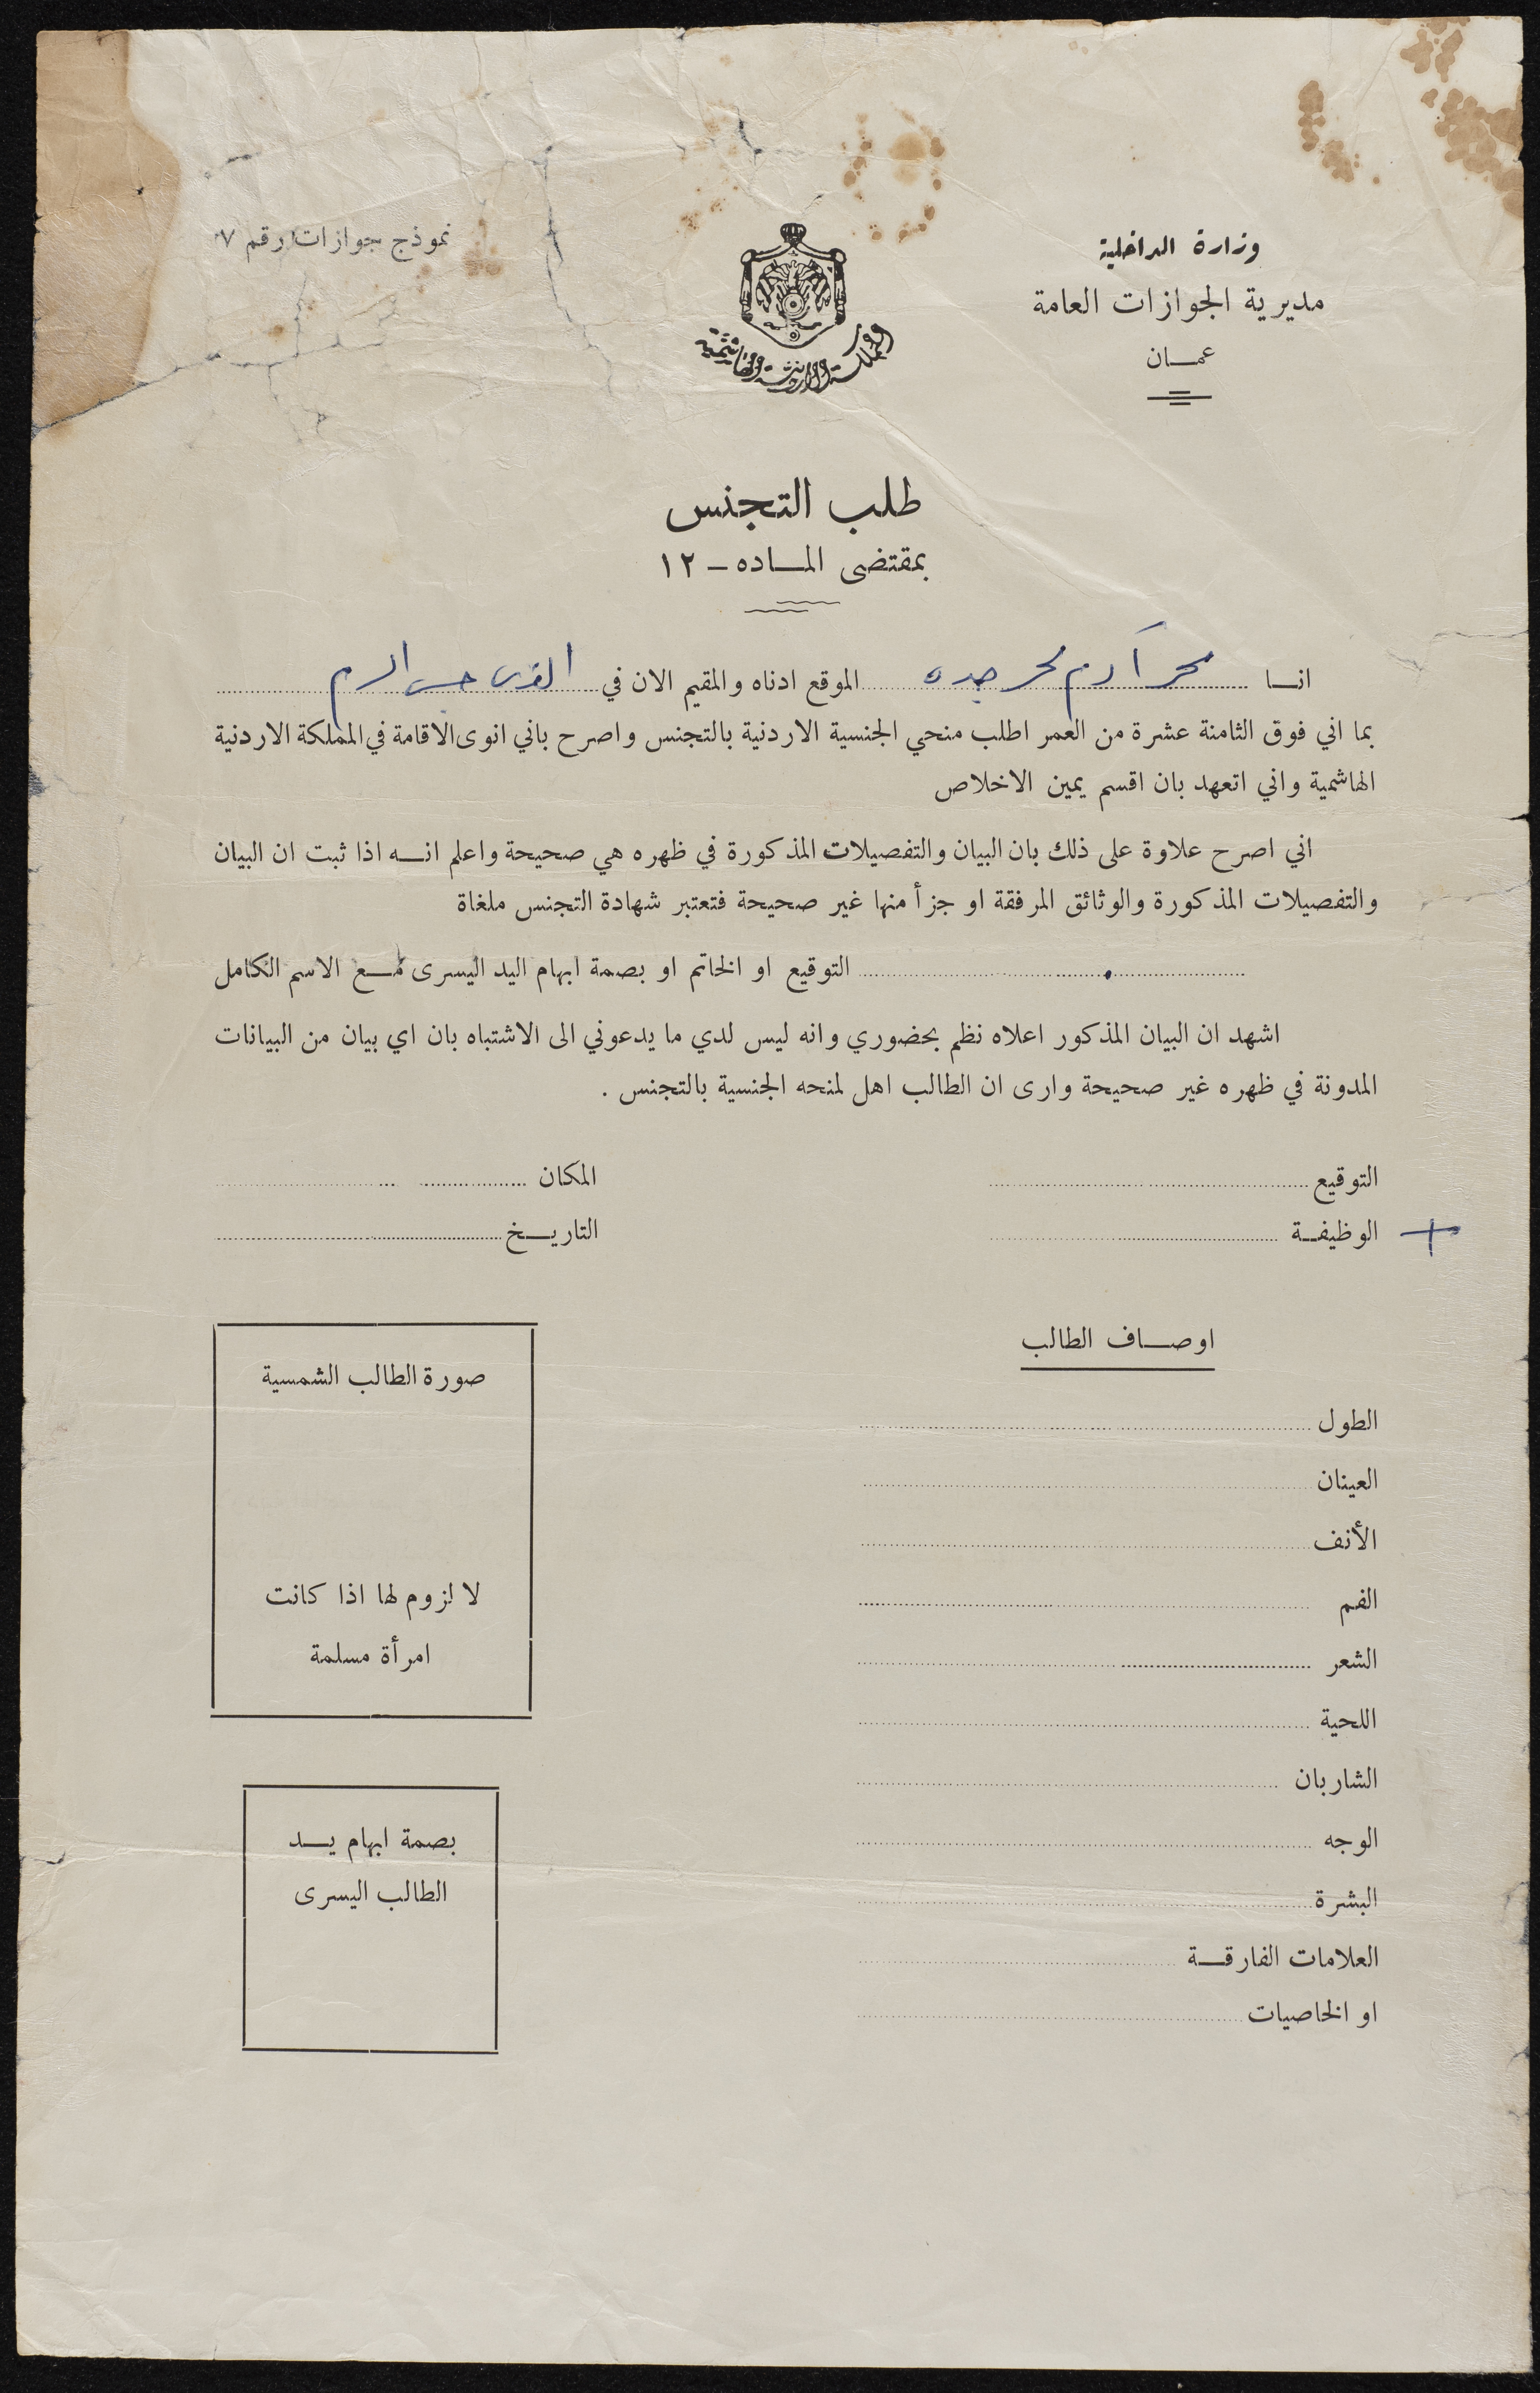 وزارة الداخلية
نموذج جوازات رقم ٧
مديرية الجوازات العامة
عمـــان
المملكة الاردنية الهاشمية
طلب التجنس
بمقتضى المـــاده – ١٢
انـــا محمد آدم محمد جده الموقع ادناه والمقيم الان في القدس حبس الدم
بما اني فوق الثامنة عشرة من العمر اطلب منحي الجنسية الاردنية بالتجنس واصرح باني انوى الاقامة في المملكة الاردنية
الهاشمية واني اتعهد بان اقسم يمين الاخلاص
اني اصرح علاوة على ذلك بان البيان والتفصيلات المذكورة في ظهره هي صحيحة واعلم انـــه اذا ثبت ان البيان
والتفصيلات المذكورة والوثائق المرفقة او جزأ منها غير صحيحة فتعتبر شهادة التجنس ملغاة
التوقيع او الخاتم او بصمة ابهام اليد اليسرى مـــع الاسم الكامل
اشهد ان البيان المذكور اعلاه نظم بحضوري وانه ليس لدي ما يدعوني الى الاشتباه بان اي بيان من البيانات
المدونة في ظهره غير صحيحة وارى ان الطالب اهل لمنحه الجنسية بالتجنس .
التوقيع المكان
الوظيفـــة التاريـــخ
اوصـــاف الطالب
صورة الطالب الشمسية
لا لزوم لها اذا كانت
امرأة مسلمة
الطول
العينان
الأنف
الفم
الشعر
اللحية
الشاربان
الوجه
البشرة
العلامات الفارقـــة
او الخاصيات
بصمة ابهام يـــد
الطالب اليسرى